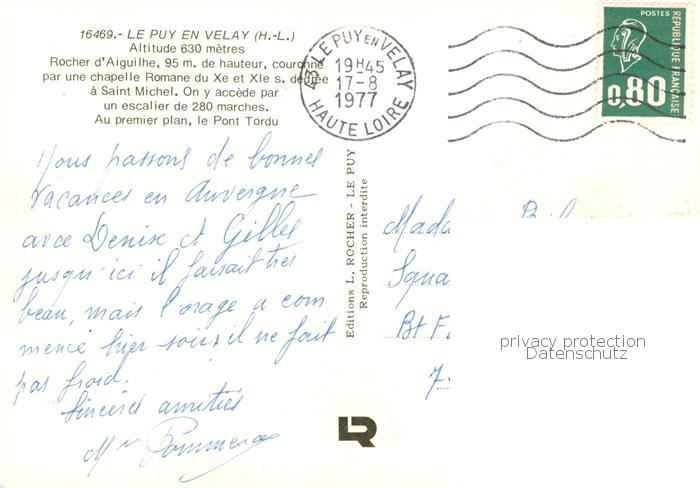 16469.- LE PUY EN VELAY (H.-L.)
Altitude 630 mètres
Rocher d'Aiguilhe, 95 m. de hauteur, couronné
par une chapelle Romane du Xe et XIe s. dédiée
à Saint Michel. On y accède par
un escalier de 280 marches.
Au premier plan, le Pont Tordu
43 LE PUY EN VELAY
19H45
17-8
1977
HAUTE LOIRE
POSTES
RÉPUBLIQUE FRANÇAISE
0,80
Nous passons de bonnes
vacances en Auvergne
avec Denise et Gilles
jusqu'ici il faisait très
beau, mais l'orage a com
mencé hier soir il ne fait
pas froid.
Sincères amitiés
Editions L. ROCHER - LE PUY
Reproduction interdite
Mada
Squa
Bt F.
7
privacy protection
Datenschutz
LR